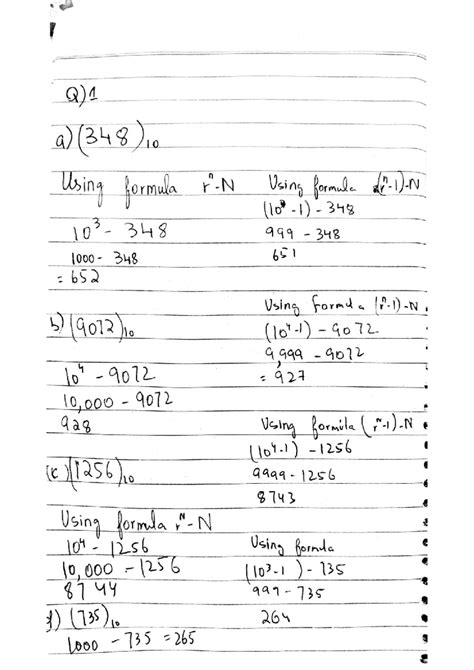 Q)1
a) (348)₁₀
Using formula rⁿ-N
10³ - 348
1000 - 348
= 652
Using formula (rⁿ-1)-N
(10³-1) - 348
999 - 348
651
b) (9072)₁₀
10⁴ - 9072
10,000 - 9072
928
Using formula (rⁿ-1)-N
(10⁴-1) - 9072
9,999 - 9072
= 927
(c) (1256)₁₀
Using formula rⁿ-N
10⁴ - 1256
10,000 - 1256
8744
Using formula (rⁿ-1)-N
(10⁴-1) - 1256
9999 - 1256
8743
d) (735)₁₀
1000 - 735 = 265
Using formula
(10³-1) - 735
999 - 735
264